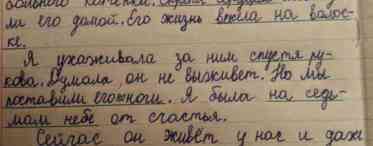 больного котенка.
ли его домой. Его жизнь висела на волос-
ке.
Я ухаживала за ним спустя ру-
кова. Думала, он не выживет. Но мы
поставили его на ноги. Я была на седь-
мом небе от счастья.
Сейчас он живёт у нас и даже